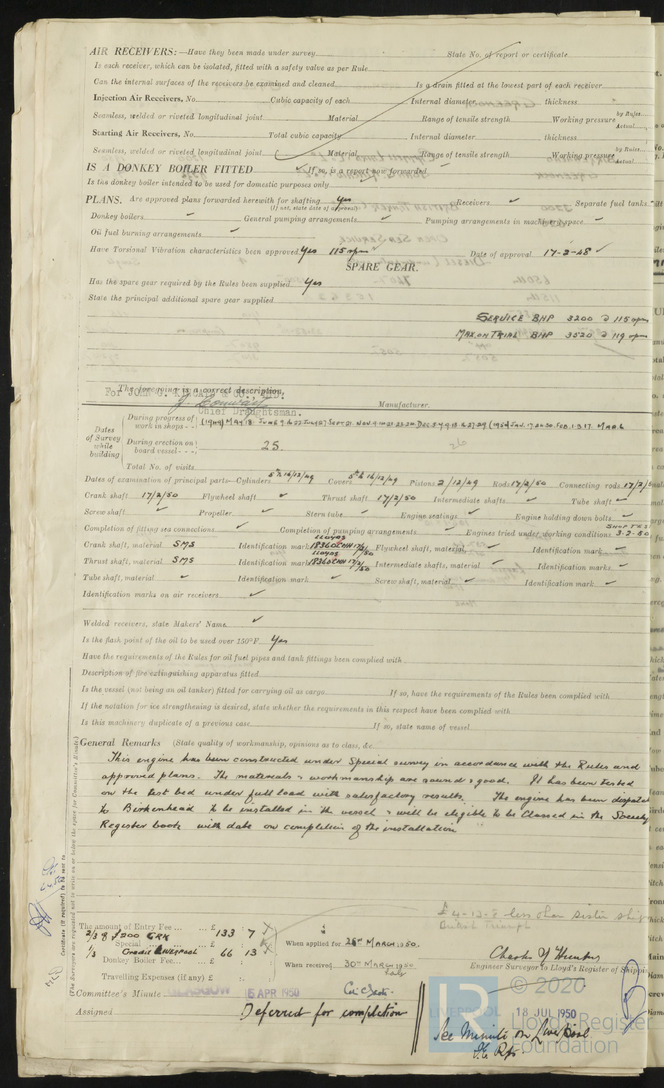 AIR RECEIVERS:—Have they been made under survey State No. of report or certificate
Is each receiver, which can be isolated, fitted with a safety valve as per Rule
Can the internal surfaces of the receivers be examined and cleaned Is a drain fitted at the lowest part of each receiver
Injection Air Receivers, No. Cubic capacity of each Internal diameter thickness
Seamless, welded or riveted longitudinal joint Material Range of tensile strength Working pressure by Rules Actual
Starting Air Receivers, No. Total cubic capacity Internal diameter thickness
Seamless, welded or riveted longitudinal joint Material Range of tensile strength Working pressure by Rules Actual
IS A DONKEY BOILER FITTED ✓ If so, is a report now forwarded
Is the donkey boiler intended to be used for domestic purposes only
PLANS. Are approved plans forwarded herewith for shafting Yes Receivers ✓ Separate fuel tanks
(If not, state date of approval)
Donkey boilers ✓ General pumping arrangements ✓ Pumping arrangements in machinery space ✓
Oil fuel burning arrangements ✓
Have Torsional Vibration characteristics been approved Yes 115 rpm Date of approval 17-2-48 ✓
SPARE GEAR.
Has the spare gear required by the Rules been supplied Yes
State the principal additional spare gear supplied
SERVICE BHP 3200 @ 115 rpm
MAX. ON TRIAL BHP 3520 @ 119 rpm
The foregoing is a correct description,
For JOHN G. KINCAID & CO. LTD.
Chief Draughtsman. Manufacturer.
Dates of Survey while building
During progress of work in shops - -
During erection on board vessel - - - 25.
Total No. of visits
Dates of examination of principal parts—Cylinders 5th 16/12/49 Covers 5th 16/12/49 Pistons 2/12/49 Rods 17/2/50 Connecting rods 17/2/5
Crank shaft 17/2/50 Flywheel shaft ✓ Thrust shaft 17/2/50 Intermediate shafts ✓ Tube shaft ✓
Screw shaft ✓ Propeller ✓ Stern tube ✓ Engine seatings ✓ Engine holding down bolts ✓
Completion of fitting sea connections ✓ Completion of pumping arrangements ✓ Engines tried under working conditions 3-3-50
Crank shaft, material SMS Identification mark LLOYDS Flywheel shaft, material ✓ Identification mark ✓
Thrust shaft, material SMS Identification mark LLOYDS Intermediate shafts, material ✓ Identification marks ✓
Tube shaft, material ✓ Identification mark ✓ Screw shaft, material ✓ Identification mark ✓
Identification marks on air receivers ✓
Welded receivers, state Makers' Name ✓
Is the flash point of the oil to be used over 150°F. Yes
Have the requirements of the Rules for oil fuel pipes and tank fittings been complied with
Description of fire extinguishing apparatus fitted
Is the vessel (not being an oil tanker) fitted for carrying oil as cargo If so, have the requirements of the Rules been complied with
If the notation for ice strengthening is desired, state whether the requirements in this respect have been complied with
Is this machinery duplicate of a previous case If so, state name of vessel
General Remarks (State quality of workmanship, opinions as to class, &c.
This engine has been constructed under Special survey in accordance with the Rules and
approved plans. The materials & workmanship are sound & good. It has been tested
on the test bed under full load with satisfactory results. The engine has been
to Birkenhead to be installed in the vessel & will be eligible to be Classed in the Society
Register book with date on completion of the installation.
£4-12-8 less than sister ship
British Triumph
The amount of Entry Fee ... £
2/3 Special GRK £ 133 : 7
1/3 Credit LIVERPOOL 66 : 13
Donkey Boiler Fee... £
Travelling Expenses (if any) £
When applied for 28th MARCH 1950.
When received 30th MARCH 1950
Engineer Surveyor to Lloyd's Register of Shipping
Committee's Minute GLASGOW 5 APR 1950
Assigned Deferred for completion
LIVERPOOL 18 JUL 1950
See Minute on Liverpool
F.E. Rpt.
LR © 2020
Lloyd's Register
Foundation
(The Surveyors are requested not to write on or below the space for Committee's Minute)